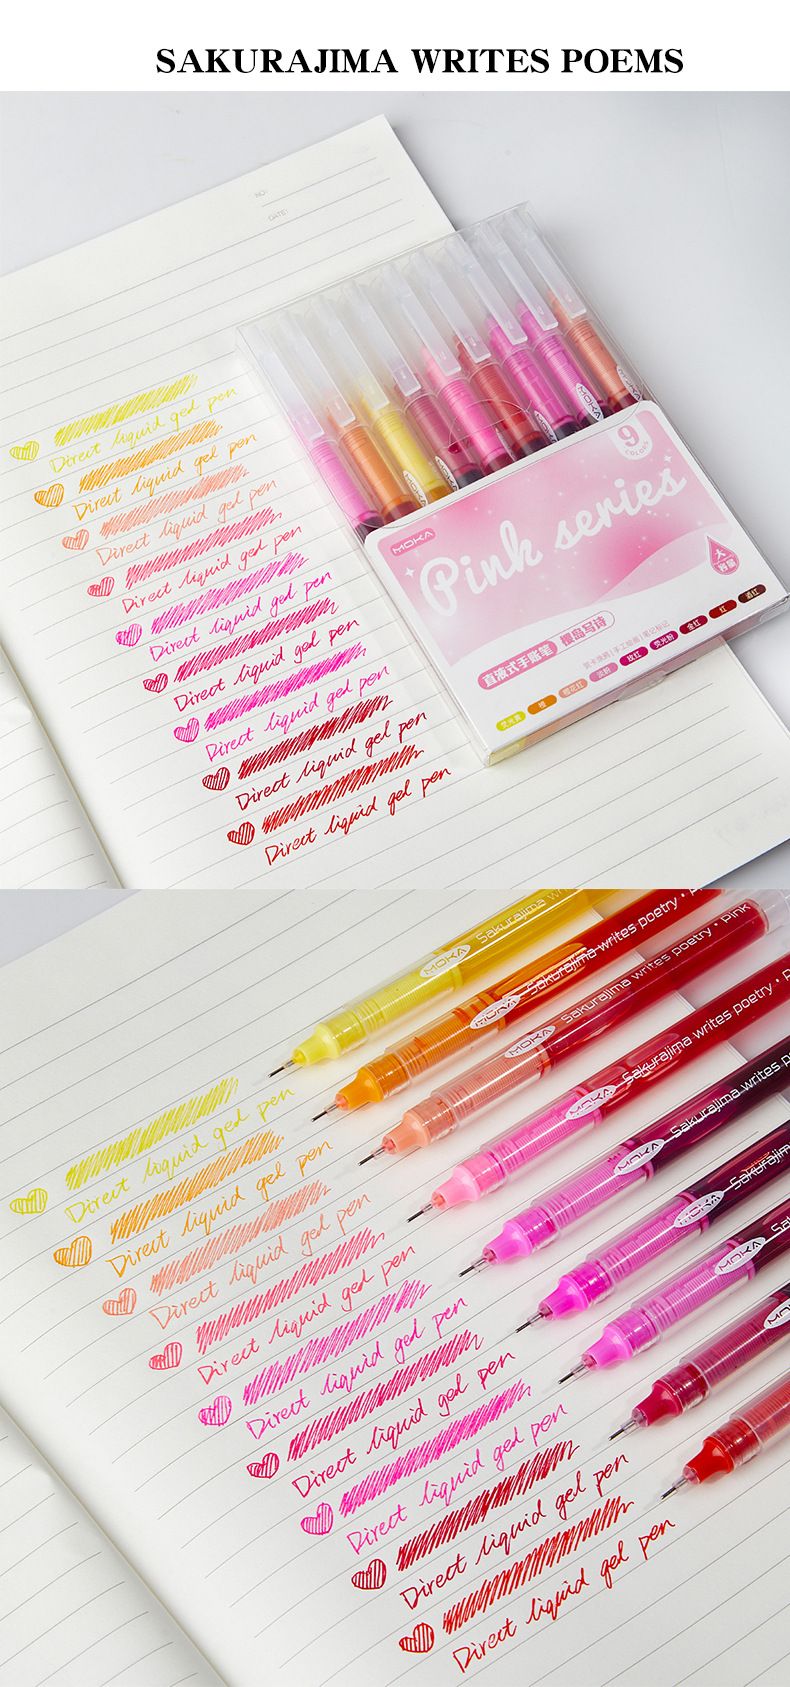 SAKURAJIMA WRITES POEMS
NO:
DATE:
Direct liquid gel pen
Direct liquid gel pen
Direct liquid gel pen
Direct liquid gel pen
Direct liquid gel pen
Direct liquid gel pen
Direct liquid gel pen
Direct liquid gel pen
Direct liquid gel pen
MOKA
MOKA
MOKA
MOKA
9
COLORS
MOKA
Pink series
大
容量
直液式手账笔 樱岛写诗
贺卡涂鸦|手工绘画|笔记标记
荧光黄 橙 橙花红 淡粉 玫红 荧光粉 金红 红 酒红
MOKA Sakurajima writes
MOKA Sakurajima writes poetry • Pink
MOKA Sakurajima writes poetry • Pink
MOKA Sakurajima writes poetry • P
MOKA Sakurajima writes po
MOKA Sakurajim
MOKA
MOKA
Direct liquid gel pen
Direct liquid gel pen
Direct liquid gel pen
Direct liquid gel pen
Direct liquid gel pen
Direct liquid gel pen
Direct liquid gel pen
Direct liquid gel pen
Direct liquid gel pen